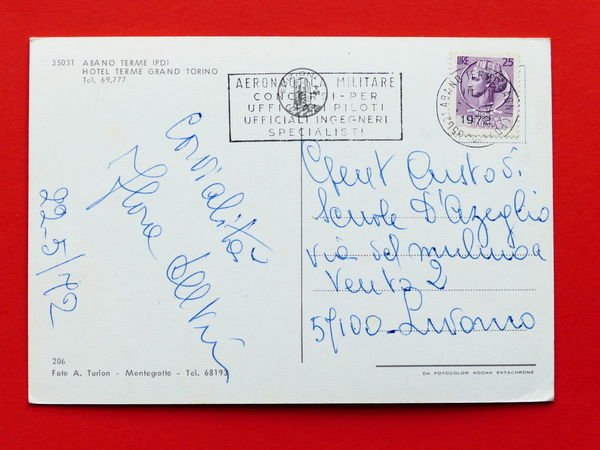 35031 ABANO TERME (PD)
HOTEL TERME GRAND TORINO
Tel. 69.777
AERONAUTICA MILITARE
CONCORSI-PER
UFFICIALI PILOTI
UFFICIALI INGEGNERI
SPECIALISTI
LIRE 25
35031 ABANO TERME
1972
Cordialità
Flora
22-5/72
Gent Custodi
Scuole D'Azeglio
via del mulino a
Vento 2
57100 - Livorno
206
Foto A. Turlon - Montegrotto - Tel. 68193
DA FOTOCOLOR KODAK EKTACHROME